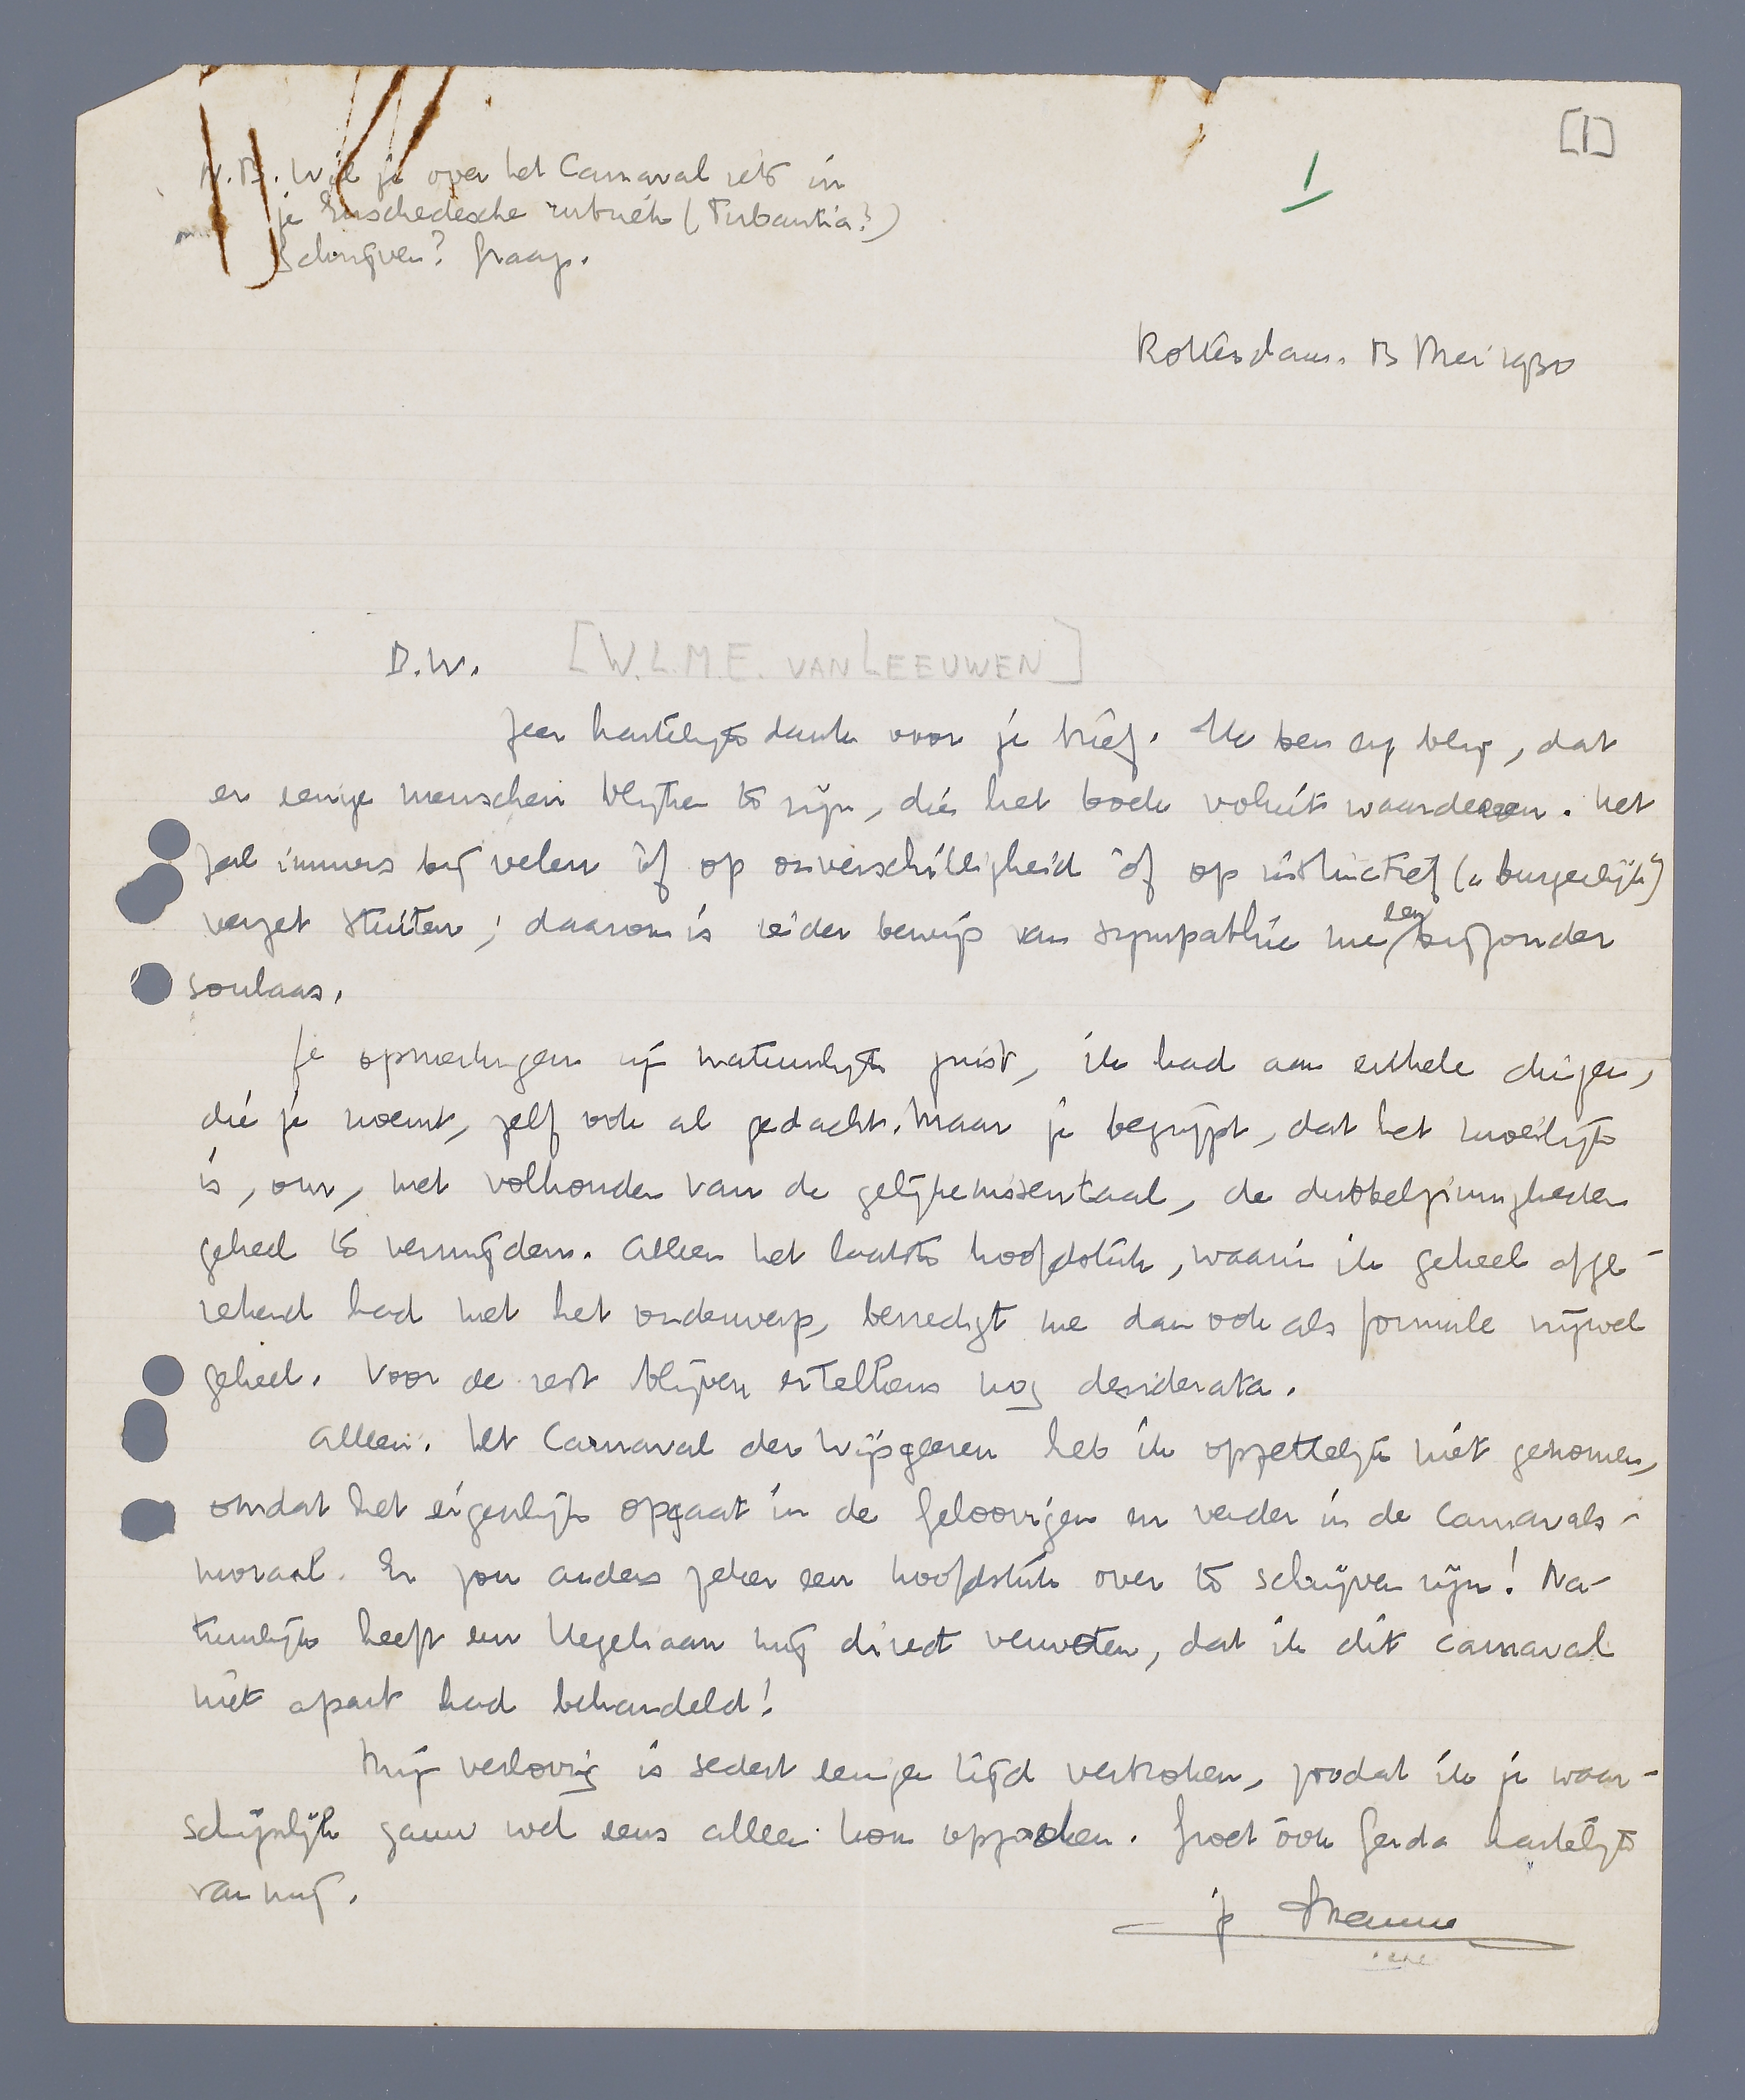 [1]
1
N.B. Wil je over het Carnaval iets in
je Enschedesche rubriek (Tubantia?)
schrijven? Graag.
Rotterdam. 13 Mei 1930
B.W. [W.L.M.E. VAN LEEUWEN]
Zeer hartelijk dank voor je brief. Ik ben erg blij, dat
er eenige menschen blijken te zijn, die het boek voluit waardeeren. Het
zal immers bij velen òf op onverschilligheid òf op instinctief („burgerlijk")
verzet stuiten; daarom is ieder bewijs van sympathie me een bijzonder
soulaas.
Je opmerkingen zijn natuurlijk juist, ik had aan enkele dingen,
die je noemt, zelf ook al gedacht. Maar je begrijpt, dat het moeilijk
is, om, met volhouden van de gelijkenissentaal, de dubbelzinnigheden
geheel te vermijden. Alleen het laatste hoofdstuk, waarin ik geheel afge-
rekend had met het onderwerp, bevredigt me dan ook als formule vrijwel
geheel. Voor de rest blijven er telkens nog desiderata.
Alleen: het Carnaval der Wijsgeeren heb ik opzettelijk niet genomen,
omdat het eigenlijk opgaat in de Geloovigen en verder in de Carnavals-
moraal. Er zou anders zeker een hoofdstuk over te schrijven zijn! Na-
tuurlijk heeft een Hegeliaan mij direct verweten, dat ik dit carnaval
niet apart had behandeld!
Mijn verloving is sedert eenigen tijd verbroken, zoodat ik je waar-
schijnlijk gauw wel eens alleen kom opzoeken. Groet ook Gerda hartelijk
van mij.
je Menno